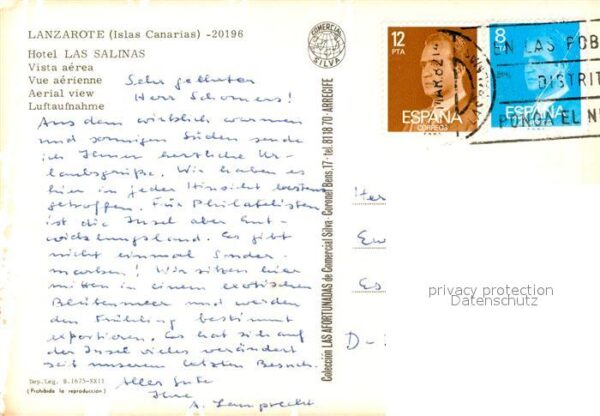 LANZAROTE (Islas Canarias) -20196
Hotel LAS SALINAS
Vista aérea
Vue aérienne
Aerial view
Luftaufnahme
Sehr geehrter
Herr Schomers!
Aus dem wirklich warmen
und sonnigen Süden sende
ich Ihnen herzliche Ur-
laubsgrüße. Wir haben es
hier in jeder Hinsicht bestens
getroffen. Für Philatelisten
ist die Insel aber Ent-
wicklungsland. Es gibt
nicht einmal Sonder-
marken! Wir sitzen hier
mitten in einem exotischen
Blütenmeer und werden
den Frühling bestimmt
exportieren. Es hat sich auf
der Insel vieles verändert
seit unserem letzten Besuch.
Alles Gute
Ihre
A. Lamprecht
Dep. Leg. B. 1675-XXII
(Prohibida la reproducción)
COMERCIAL
SILVA
Colección LAS AFORTUNADAS de Comercial Silva - Coronel Bens, 17 - tel. 81 18 70 - ARRECIFE
12
PTA
ESPAÑA
CORREOS
8
PTA
ESPAÑA
MAR 82
EN LAS POB
DISTRIT
PONGA EL N
Her
Ew
Es
D-
privacy protection
Datenschutz